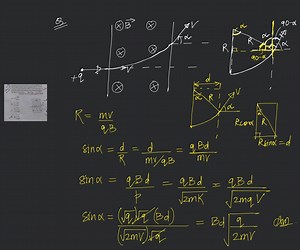 B.
⊗ B⃗ ⊗
V
α
⊗ ⊗
+q
⊗ ⊗
α 90-α
R R α
90-α
d V
R α
R R
Rcosα
Rsinα=d
R = mv/qB
sinα = d/R = d/(mv/qB) = qBd/mv
sinα = qBd/p = qBd/√2mK = qBd/√2mqV
sinα = (√q)(√q)(Bd)/(√2mV)(√q) = Bd√(q/2mV)